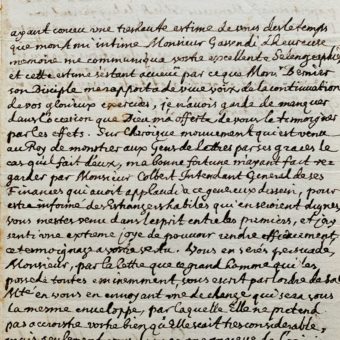 ayant conceu une treshaute estime de vous dés le temps
que mon tmi intime Monsieur Gassendi d'heureuse
memoire me communiqua vostre excellente Selenographie
et cette estime s'estant accreüe par ce que Monr. Bernier
son Disciple me rapporta de vive voix de la continuation
de vos glorieux exercices, je n'avois garde de manquer
dans l'occasion que Dieu m'a offerte de vous le temoigner
par les effets. Sur l'heroique mouvement qui est venu
au Roy de monstrer aux Gens de Lettres par ses graces le
cas qu'il fait d'eux, ma bonne fortune m'ayant fait re-
garder par Monsieur Colbert Intendant General de ses
Finances qui avoit applaudi a ce genereux dessein, pour
estre informé des Estrangers habiles qui en seroient dignes,
vous m'estes venu dans l'esprit entre les premiers, et j'ay
senti une extreme joye de pouvoir rendre efficacement
ce temoignage a vostre vertu. Vous en serés persuadé,
Monsieur, par la lettre que ce grand homme qui les
possede toutes eminemment, vous escrit par l'ordre de Sa
Mté en vous envoyant une lettre de change qui sera sous
la mesme enveloppe, par laquelle Elle ne pretend
pas accroistre vostre bien qu'elle sçait tres considerable,